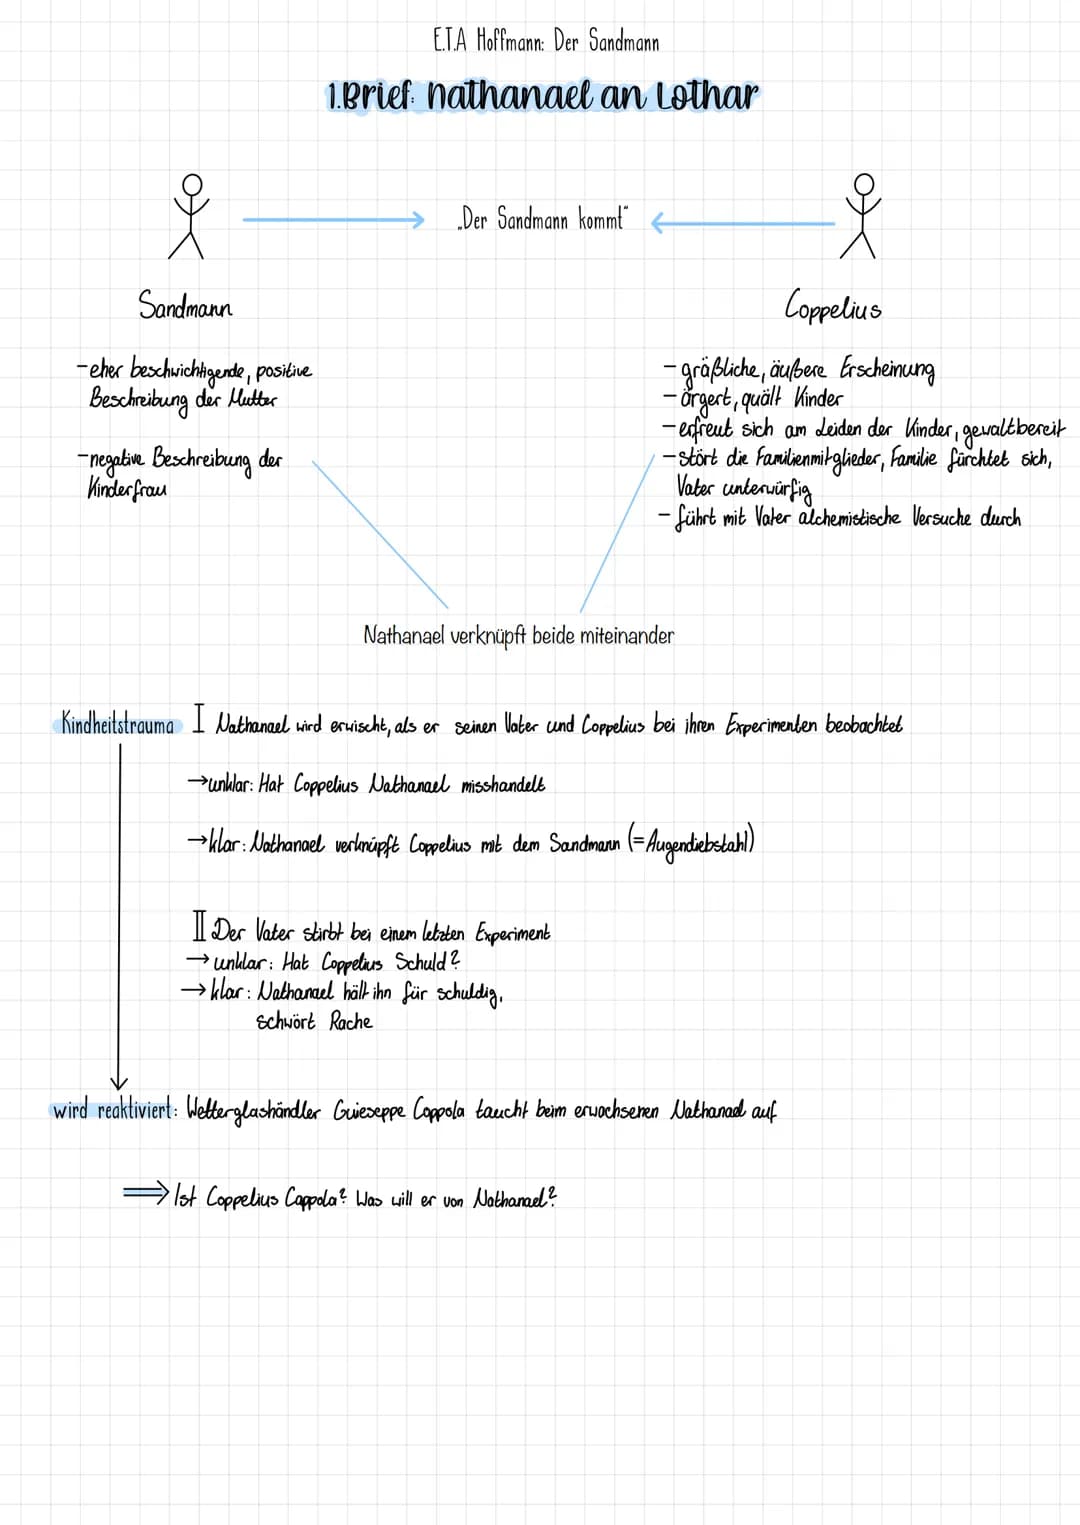 E.T.A Hoffmann: Der Sandmann
1.Brief: Nathanael an Lothar
„Der Sandmann kommt"
Sandmann
Coppelius
-eher beschwichtigende, positive
Beschreibung der Mutter
-negative Beschreibung der
Kinderfrau
- gräßliche, äußere Erscheinung
- ärgert, quält Kinder
- erfreut sich am Leiden der Kinder, gewaltbereit
- stört die Familienmitglieder, Familie fürchtet sich,
Vater unterwürfig
- führt mit Vater alchemistische Versuche durch
Nathanael verknüpft beide miteinander
Kindheitstrauma I Nathanael wird erwischt, als er seinen Vater und Coppelius bei ihren Experimenten beobachtet
→unklar: Hat Coppelius Nathanael misshandelt
→klar: Nathanael verknüpft Coppelius mit dem Sandmann (=Augendiebstahl)
II Der Vater stirbt bei einem letzten Experiment
→ unklar: Hat Coppelius Schuld?
→ klar: Nathanael hält ihn für schuldig,
schwört Rache
wird reaktiviert: Wetterglashändler Guieseppe Coppola taucht beim erwachsenen Nathanael auf
⟹ Ist Coppelius Coppola? Was will er von Nathanael?